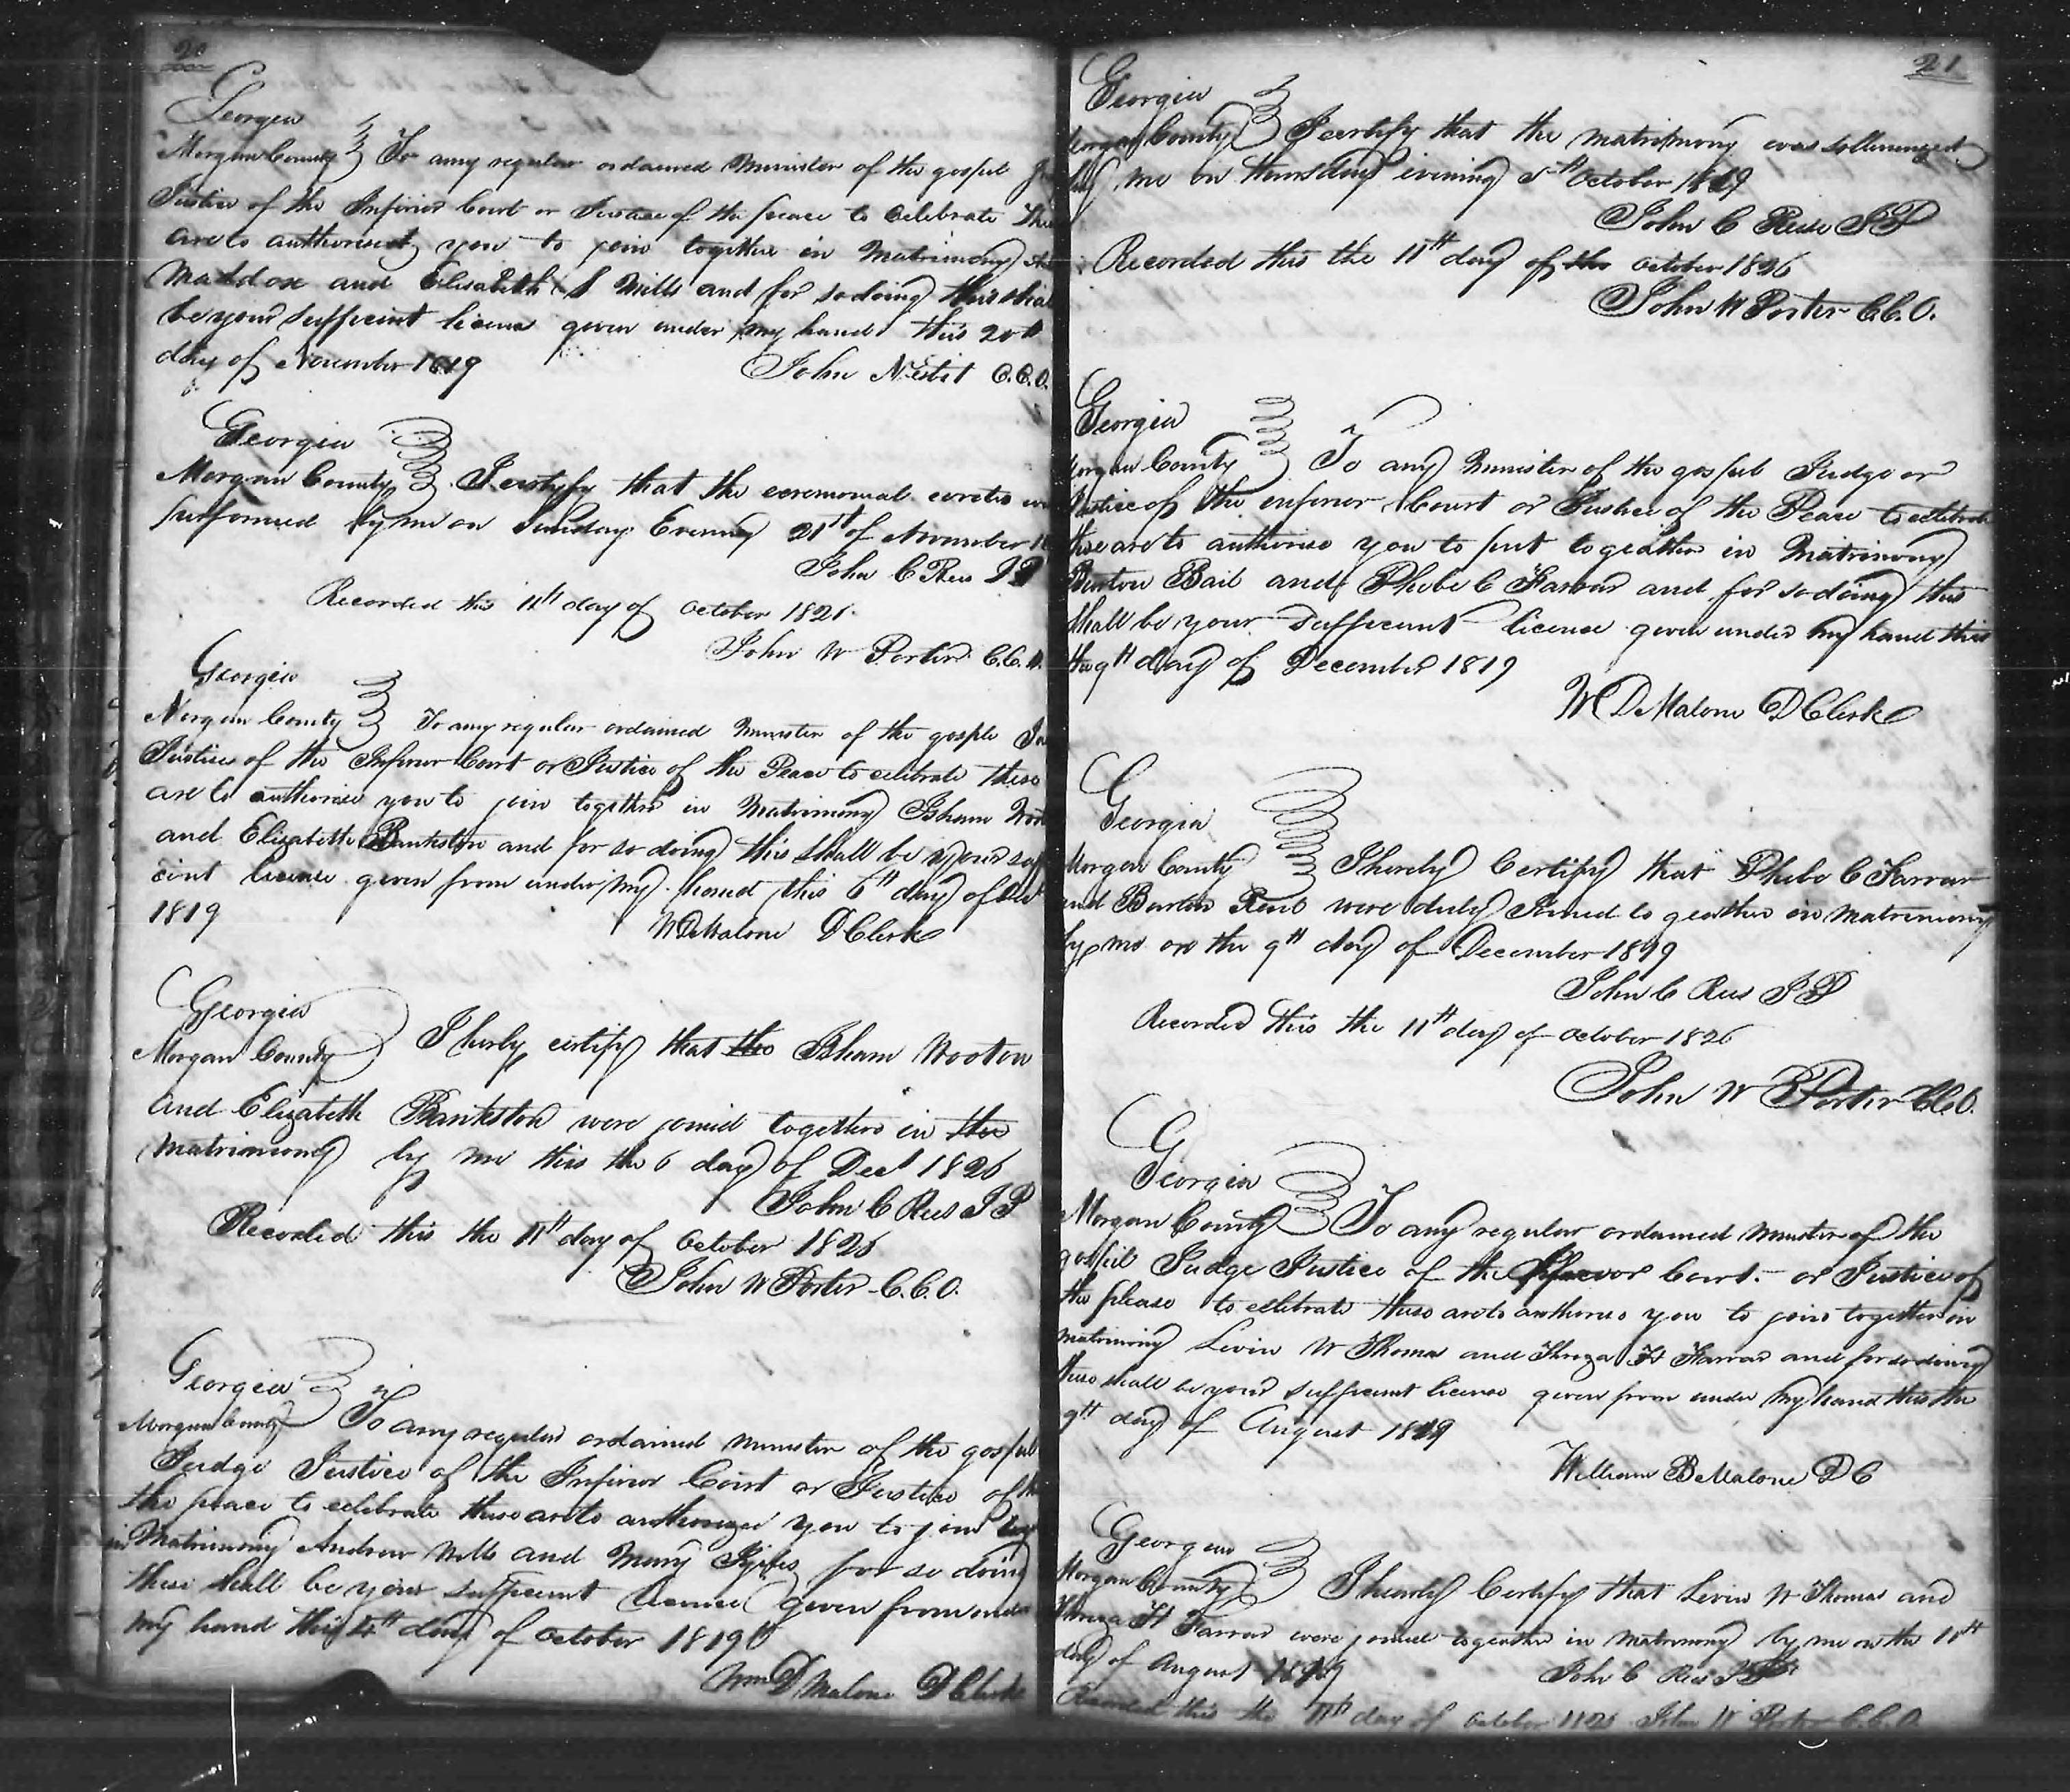 20
Georgia
Morgan County To any regular ordained Minister of the gospel
Justice of the Inferior Court or Justice of the peace to Celebrate
are to authorise you to join together in Matrimony
Maddox and Elisabeth S Mills and for so doing this shall
be your sufficient licence given under my hand this 20th
day of November 1819
John Nesbit C.C.O.
Georgia
Morgan County I certify that the
performed by me on Sunday Evening 21st of November
John C Rees JP
Recorded this 11th day of October 1826
John W Porter C.C.O.
Georgia
Morgan County To any regular ordained Minister of the gosple
Justice of the Inferior Court or Justice of the Peace to celibrate these
are to authorise you to join together in Matrimony Isham
and Elizabeth Bankston and for so doing this shall be your
cient licence given from under my hand this 6th day of
1819
W D Malone D Clerk
Georgia
Morgan County I herby certify that the Isham Wooton
and Elizabeth Bankston were joined together in the
Matrimony by me this the 6 day of Dect 1826
John C Rees J P
Recorded this the 11th day of October 1826
John W Porter C.C.O.
Georgia
Morgan County To any regular ordained Minister of the gospel
Judge Justice of the Inferior Court or Justice of
the peace to celebrate these are to you to join
in Matrimony Andrew Mills and Mary for so doing
these shall be your sufficient licence given from under
my hand this 4th day of October 1819
Wm D Malone D Clerk
21
Georgia
Morgan County I certify that the matrimony was
by me on evining 5th October 1819
John C Reese JP
Recorded this the 11th day of the October 1826
John W Porter C.C.O.
Georgia
Morgan County To any Minister of the gospel Judge or
Justice of the inferior Court or Justice of the Peace to celibrate
these are to authorise you to put togeather in Matrimony
Burton and Phebe C Farrar and for so doing this
shall be your Sufficeunt license given under my hand this
the 9th day of December 1819
W D Malone D Clerk
Georgia
Morgan County I hereby Certify that Phebe C Farrar
and Burton were duly Joined to geather in Matrimony
by me on the 9th day of December 1819
John C Rees J P
Recorded this the 11th day of October 1826
John W Porter C.C.O.
Georgia
Morgan County To any regular ordained minister of the
gospel Judge Justice of the Court or Justice of
the please to celibrate these are to you to join together in
matrimony Levin W Thomas and H Farrar and for so doing
these shall be your sufficeunt licence given from under my hand this the
9th day of August 1819
William D Malone D C
Georgia
Morgan County I hereby Certify that Levin W Thomas and
H Farrar were joined togeather in Matrimony by me on the 10th
day of August 1819 John C Rees JP
Recorded this the 11th day of October 1826 John W Porter C.C.O.